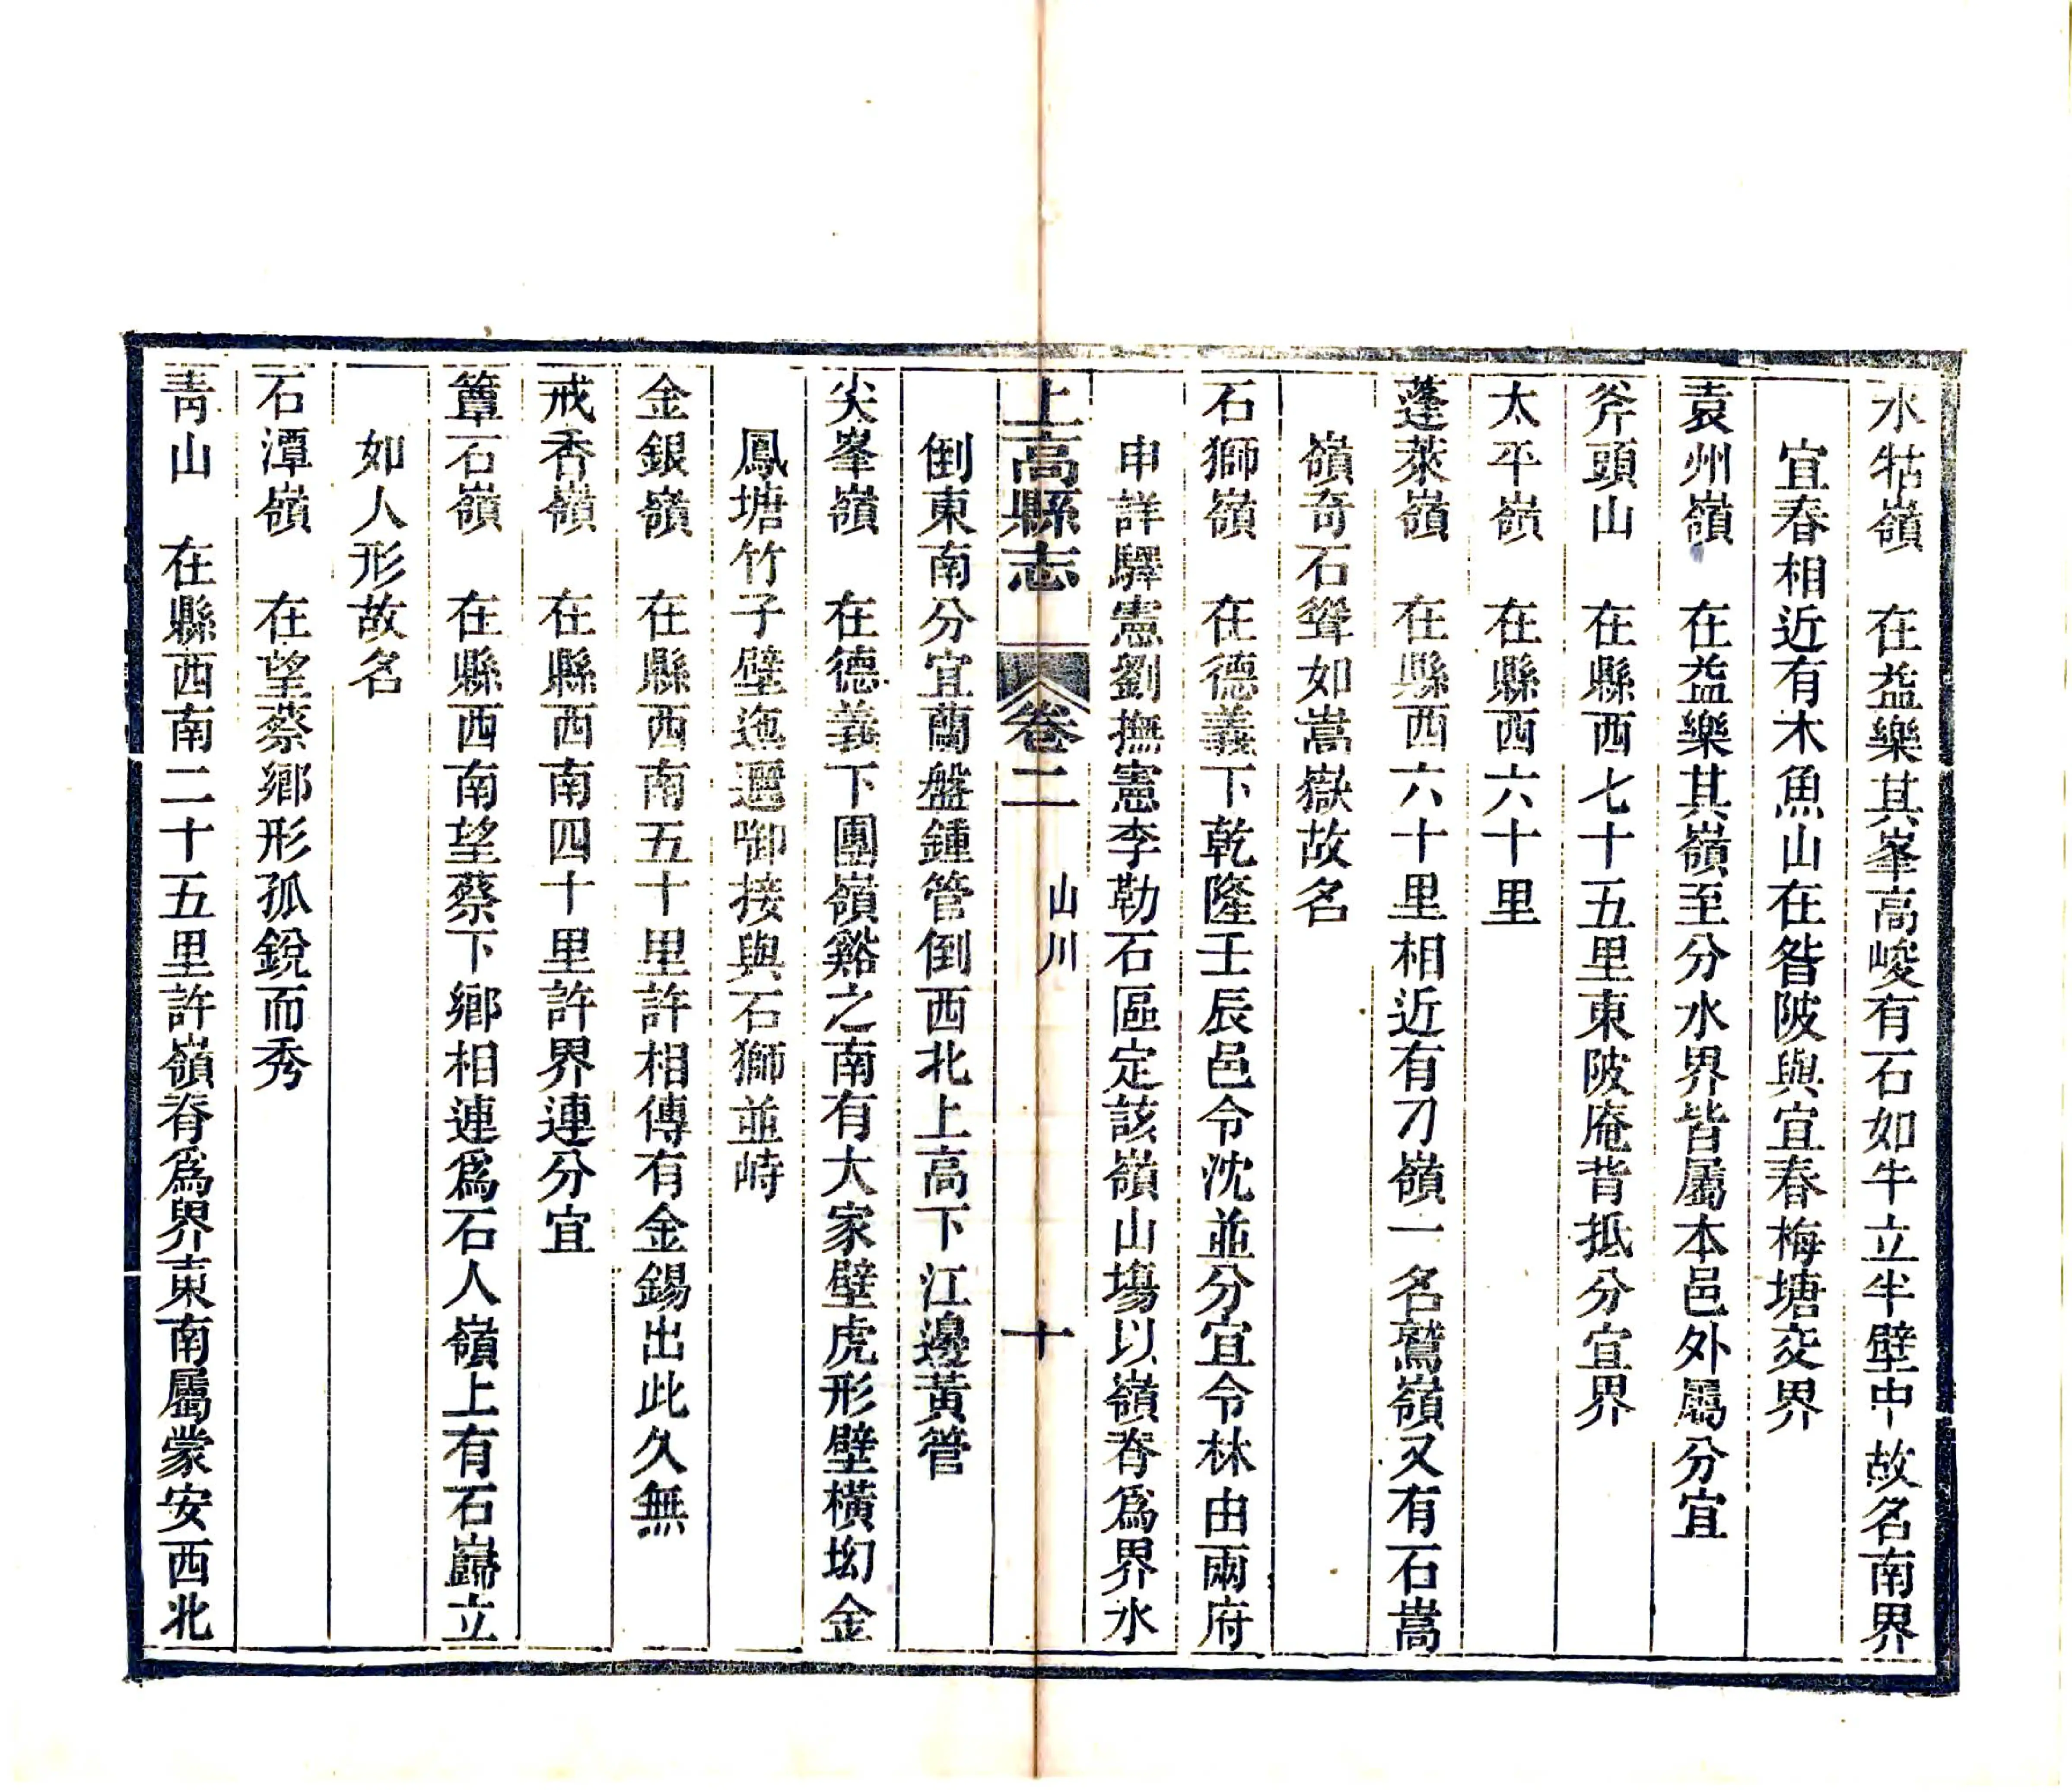 水牯嶺　在益樂其峯高峻有石如牛立半壁中故名南界
宜春相近有木魚山在昝陂與宜春梅塘交界
袁州嶺　在益樂其嶺至分水界皆屬本邑外屬分宜
斧頭山　在縣西七十五里東陂庵背抵分宜界
太平嶺　在縣西六十里
蓬萊嶺　在縣西六十里相近有刀嶺一名鷲嶺又有石嵩
嶺奇石聳如嵩嶽故名
石獅嶺　在德義下乾隆壬辰邑令沈並分宜令林由兩府
申詳驛憲劉撫憲李勒石區定該嶺山塲以嶺脊爲界水
倒東南分宜蘭盤鍾管倒西北上高下江邊黃管
上高縣志　卷二　山川　十
尖峯嶺　在德義下團嶺谿之南有大家壁虎形壁橫坳金
鳳塘竹子壁迤邐啣接與石獅並峙
金銀嶺　在縣西南五十里許相傳有金錫出此久無
戒香嶺　在縣西南四十里許界連分宜
簟石嶺　在縣西南望蔡下鄉相連爲石人嶺上有石巋立
如人形故名
石潭嶺　在望蔡鄉形孤銳而秀
靑山　在縣西南二十五里許嶺脊爲界東南屬蒙安西北